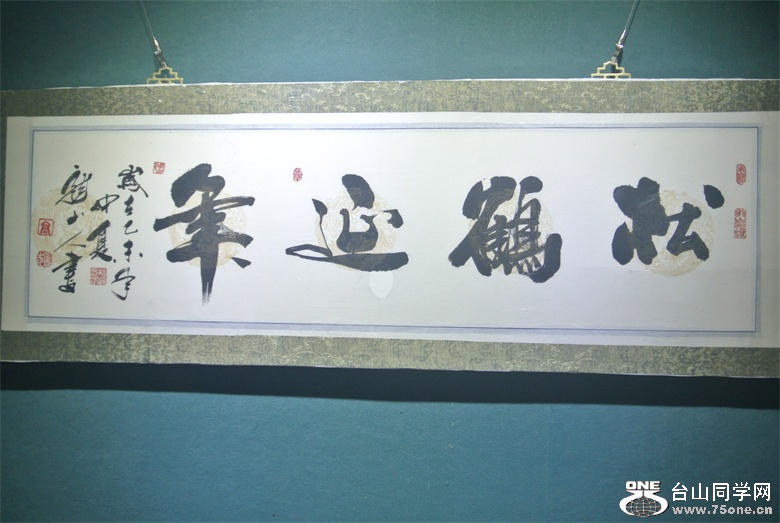 松鹤延年
岁在乙未年
仲夏
山人书
ONE
台山同学网
www.75one.cn